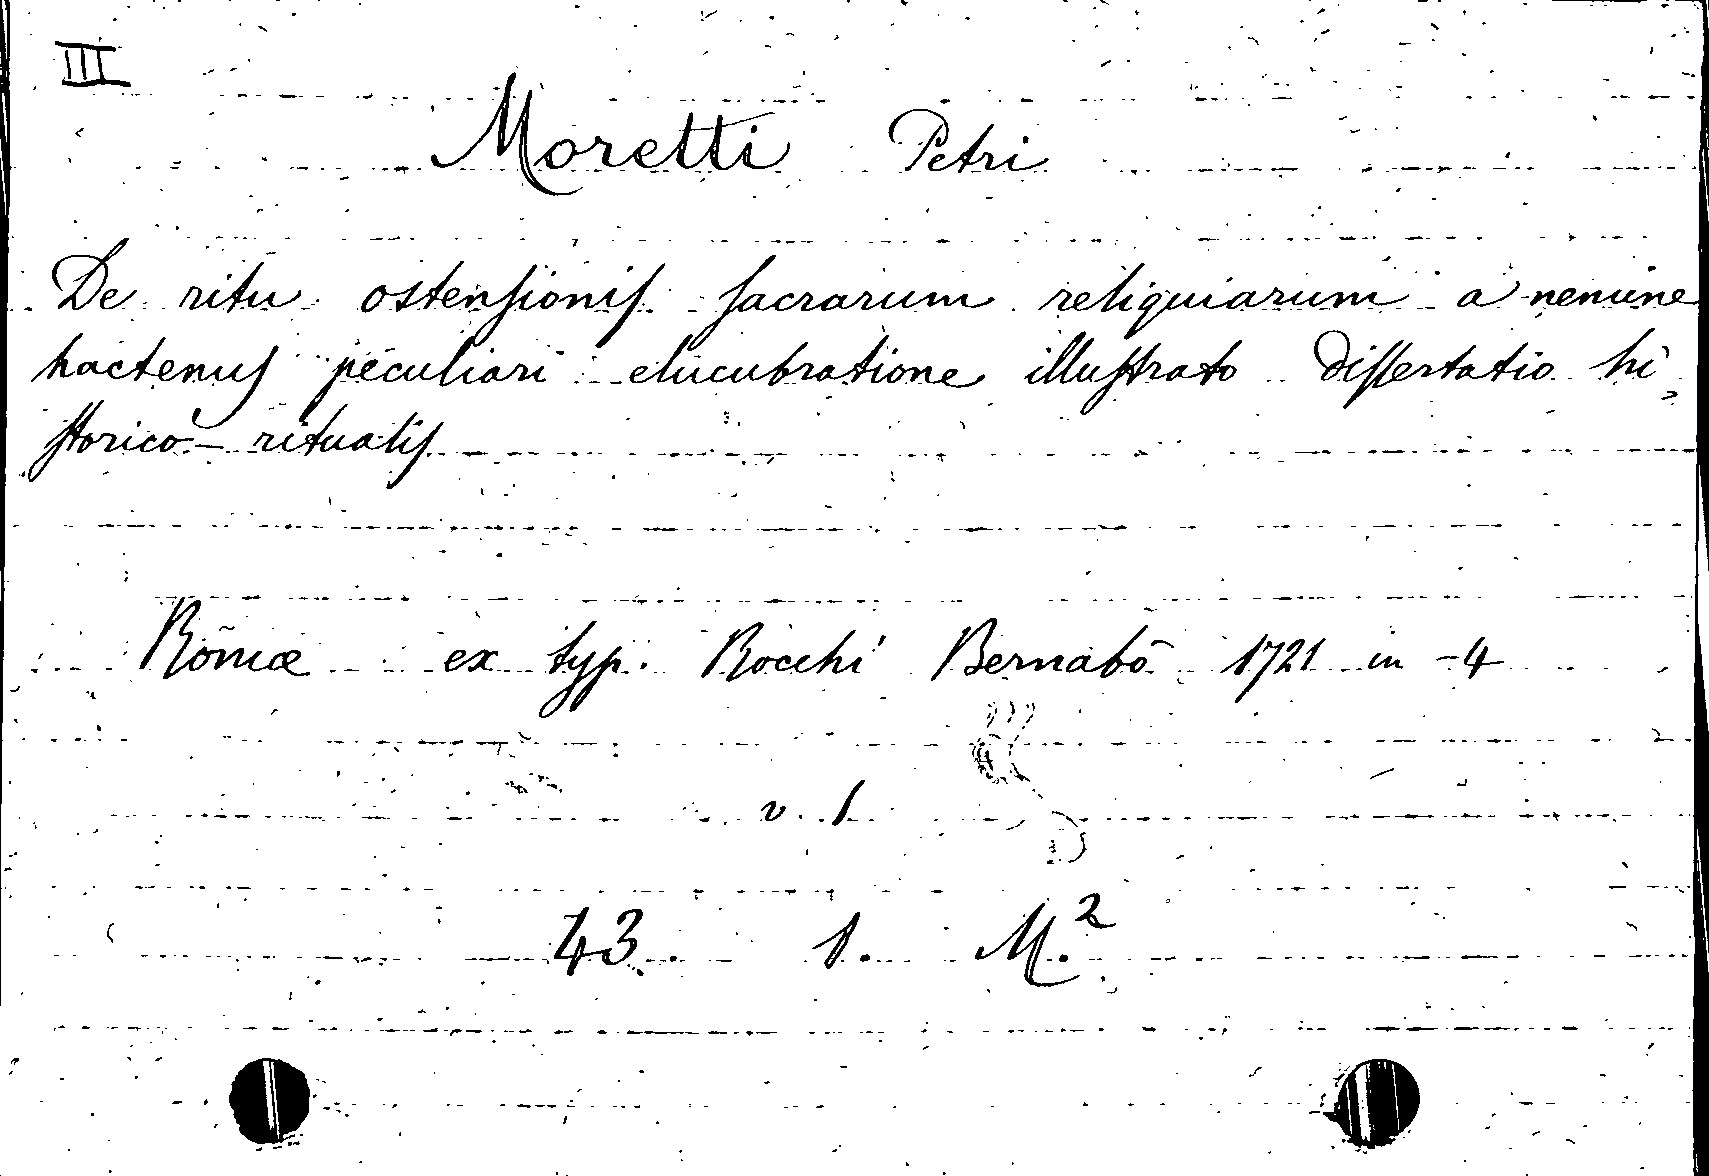 III
Moretti Petri
De ritu ostenſioniſ ſacrarum reliquiarum a nemine
hactenuſ peculiari elucubratione illuſtrato diſſertatio hi
ſtorico - ritualiſ
Romæ ex typ. Rocchi Bernabò 1721 in -4
v. 1
43. 1. M.²